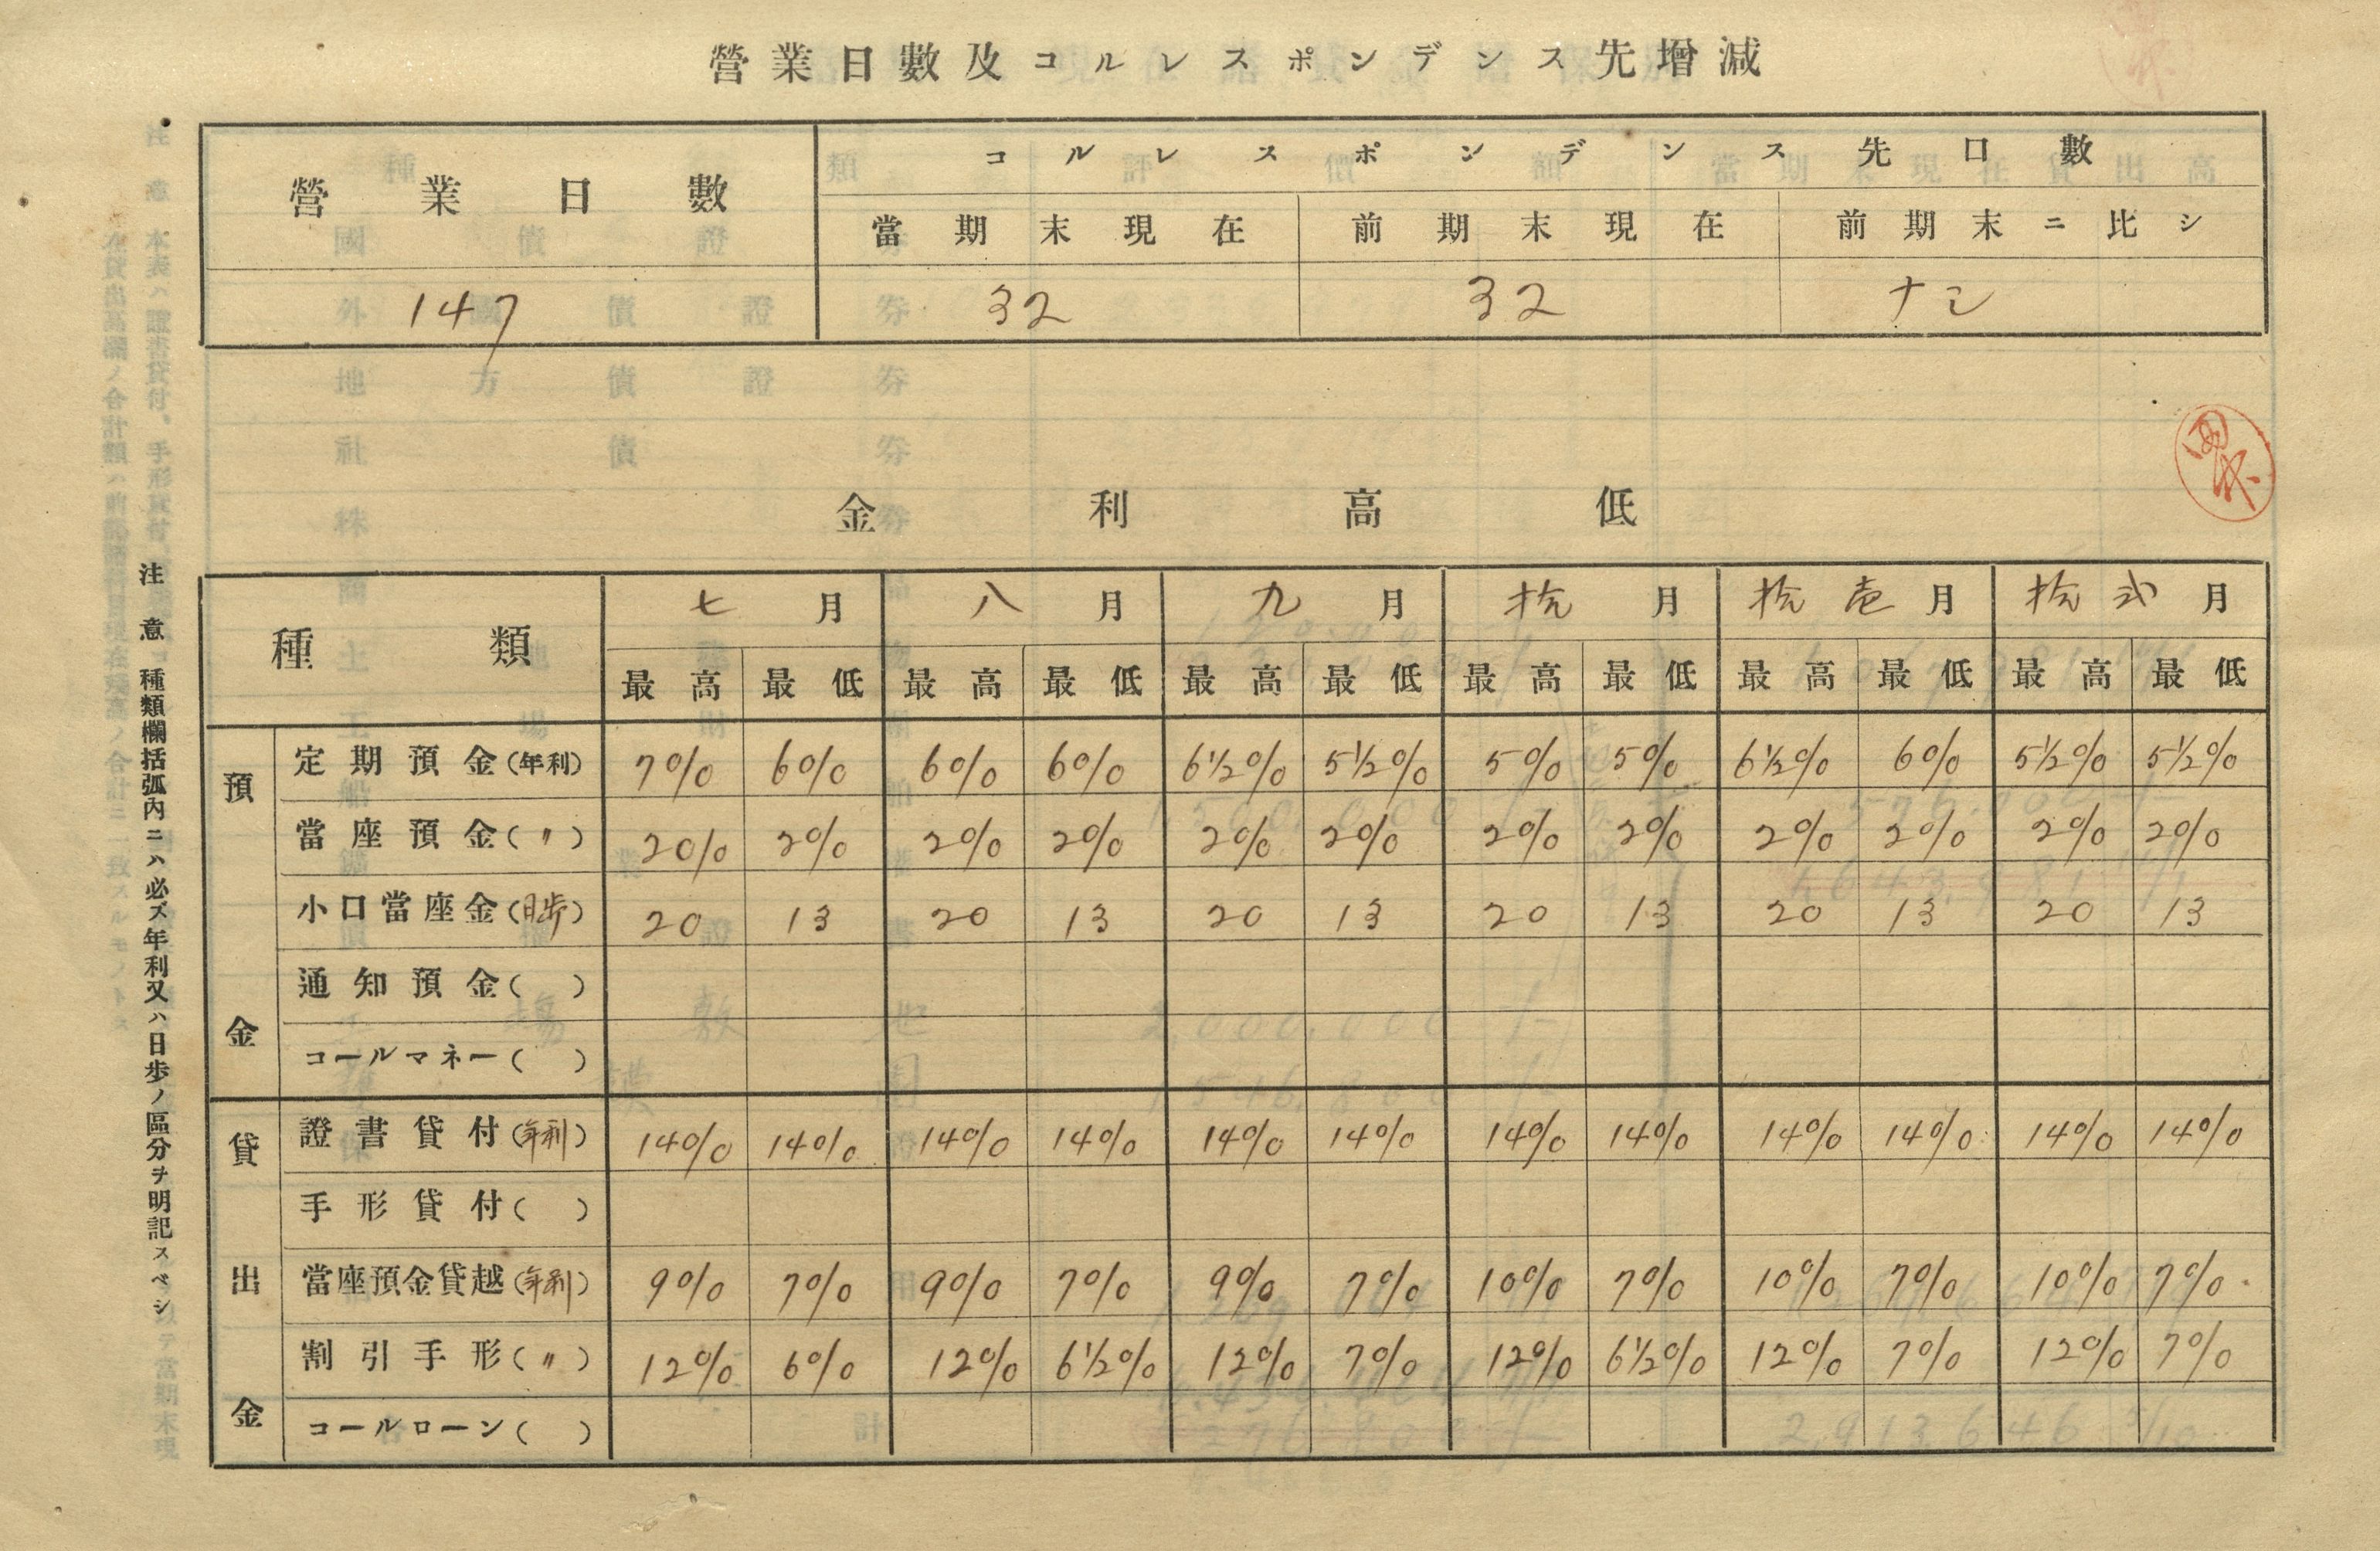 營業日數及コルレスポンデンス先增減
營業日數 コルレスポンデンス先口數
當期末現在 前期末現在 前期末ニ比シ
147 32 32 ナシ
金利高低
種類 七月 八月 九月 拾月 拾壱月 拾弐月
最高 最低 最高 最低 最高 最低 最高 最低 最高 最低 最高 最低
預金
定期預金(年利) 7% 6% 6% 6% 6½% 5½% 5% 5% 6½% 6% 5½% 5½%
當座預金(〃) 2% 2% 2% 2% 2% 2% 2% 2% 2% 2% 2% 2%
小口當座金(日步) 20 13 20 13 20 13 20 13 20 13 20 13
通知預金( )
コールマネー( )
貸出金
證書貸付(年利) 14% 14% 14% 14% 14% 14% 14% 14% 14% 14% 14% 14%
手形貸付( )
當座預金貸越(年利) 9% 7% 9% 7% 9% 7% 10% 7% 10% 7% 10% 7%
割引手形(〃) 12% 6% 12% 6½% 12% 7% 12% 6½% 12% 7% 12% 7%
コールローン( )
注意 種類欄括弧內ニハ必ズ年利又ハ日步ノ區分ヲ明記スベシ